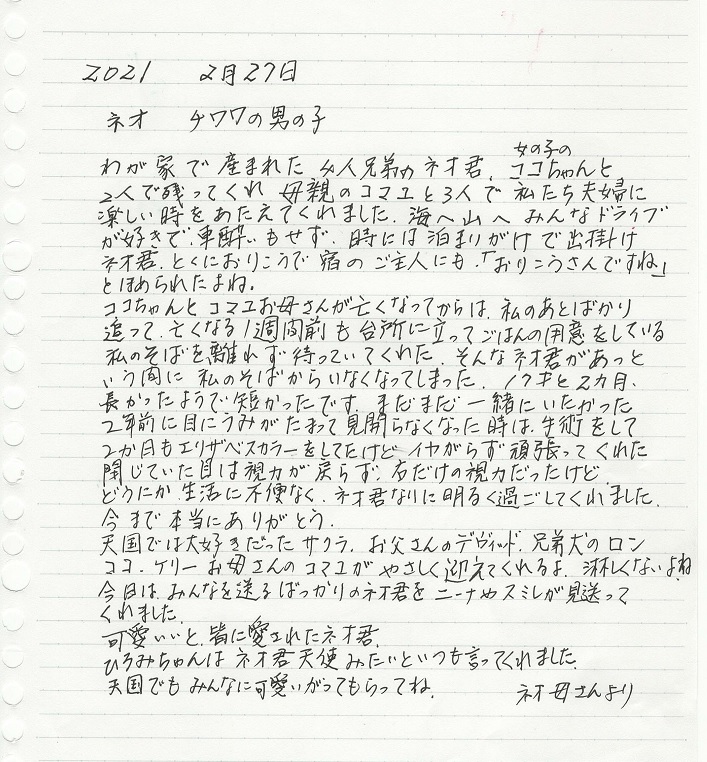 2021 2月27日
ネオ チワワの男の子
女の子の
わが家で産まれた4人兄弟がネオ君、ココちゃんと
2人で残ってくれ 母親のコマユと3人で 私たち夫婦に
楽しい時をあたえてくれました。海へ山へ みんなドライブ
が好きで、車酔いもせず、時には泊まりがけで出掛け
ネオ君、とくにおりこうで宿のご主人にも「おりこうさんですね」
とほめられたよね。
ココちゃんと コマユお母さんが亡くなってからは、私のあとばかり
追って、亡くなる1週間前も台所に立ってごはんの用意をしている
私のそばを離れず待っていてくれた。そんなネオ君があっと
いう間に 私のそばからいなくなってしまった。17才と2カ月、
長かったようで短かったです。まだまだ 一緒にいたかった
2年前に目にうみがたまって見開らなくなった時は、手術をして
2か月もエリザベスカラーをしてたけど イヤがらず頑張ってくれた
閉じていた目は視力が戻らず、右だけの視力だったけど、
どうにか生活に不便なく、ネオ君なりに明るく過ごしてくれました。
今まで本当にありがとう。
天国では大好きだったサクラ、お父さんのデヴィッド、兄弟犬のロン
ココ、ケリー お母さんのコマユが やさしく迎えてくれるよ、淋しくないよね
今日は、みんなを送るばっかりのネオ君を ニーナやスミレが見送って
くれました。
可愛いいと、皆に愛されたネオ君、
ひろみちゃんは ネオ君天使みたいといつも言ってくれました。
天国でもみんなに可愛いがってもらってね。
ネオ母さんより